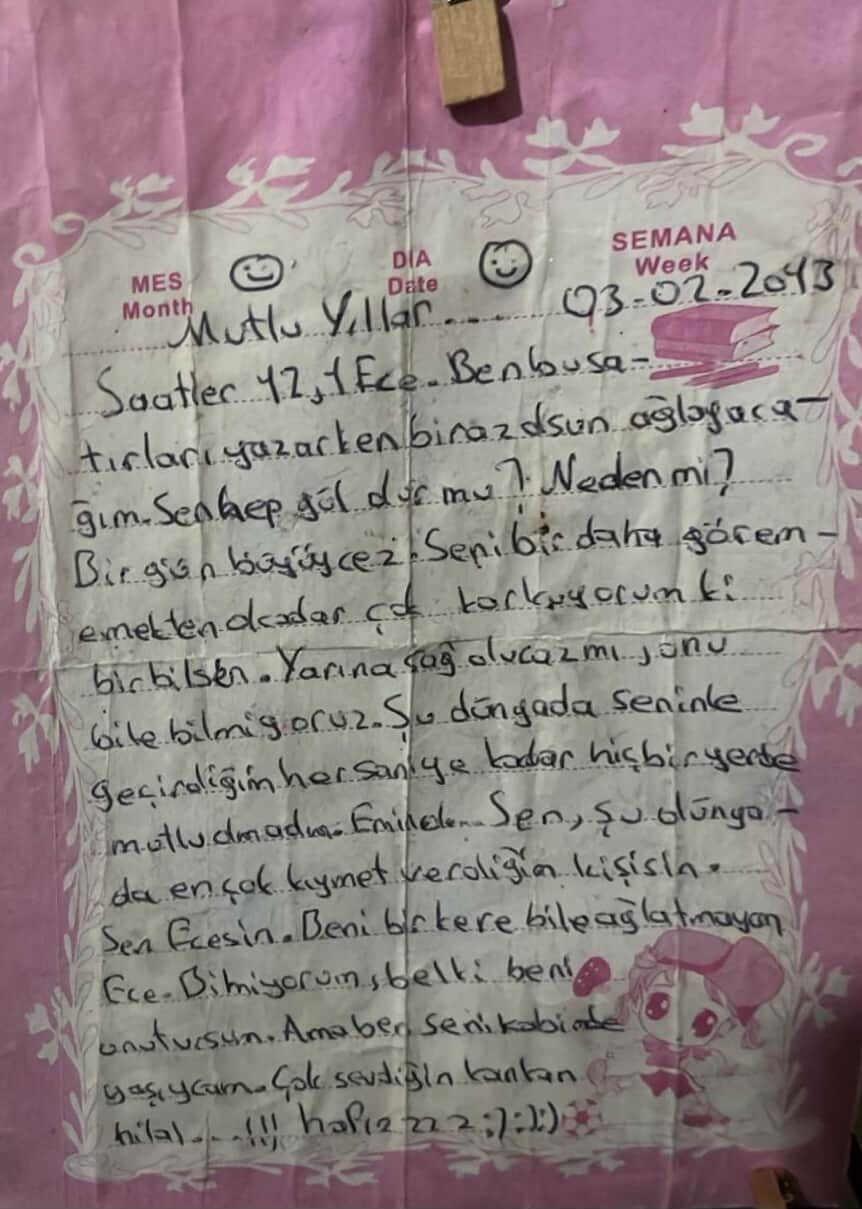 MES
Month
DIA
Date
SEMANA
Week
Mutlu Yıllar.... 03-02-2013
Saatler 12,1 Ece. Ben bu sa-
tırları yazarken biraz dsun ağlayaca-
ğım. Sen hep gül dur mu? Neden mi?
Bir gün büyüycez. Seni bir daha görem-
emekten okadar çok korkuyorum ki
bir bilsen. Yarına sağ olucazmı, onu
bile bilmiyoruz. Şu dünyada seninle
geçirdiğim her saniye kadar hiçbir yerde
mutlu olmadım. Eminol... Sen, şu dünya-
da en çok kıymet verdiğim kişisin.
Sen Ecesin. Beni bir kere bile ağlatmayan
Ece. Bilmiyorum, belki beni
unutursun. Ama ben seni kalbimde
yaşıycam. Çok sevdiğin kankan
hilal....!!! :):):)